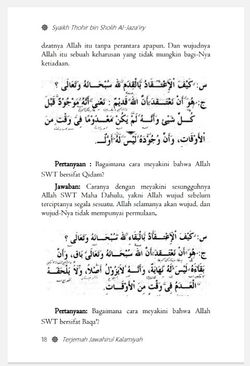 Syaikh Thohir bin Sholih Al-Jaza'iry
dzatnya Allah itu tanpa perantara apapun. Dan wujudnya
Allah itu sebuah keharusan yang tidak mungkin bagi-Nya
ketiadaan.
س: كَيْفَ الْإِعْتِقَادُ بِالْقِدَمِ لِلّٰهِ سُبْحَانَهُ وَتَعَالَى ؟
ج: هُوَ أَنْ نَعْتَقِدَ بِأَنَّ اللهَ قَدِيْمٌ : نَعْنِي أَنَّهُ مَوْجُوْدٌ قَبْلَ
كُلِّ شَيْئٍ وَأَنَّهُ لَمْ يَكُنْ مَعْدُوْمًا فِي وَقْتٍ مِنَ
الْأَوْقَاتِ، وَأَنَّ وُجُوْدَهُ لَيْسَ لَهُ أَوَّلُ.
Pertanyaan : Bagaimana cara meyakini bahwa Allah
SWT bersifat Qidam?
Jawaban: Caranya dengan meyakini sesungguhnya
Allah SWT Maha Dahulu, yakni Allah wujud sebelum
terciptanya segala sesuatu. Allah selamanya akan wujud, dan
wujud-Nya tidak mempunyai permulaan.
س: كَيْفَ الْإِعْتِقَادُ بِالْبَقَاءِ لِلّٰهِ سُبْحَانَهُ وَتَعَالَى ؟
ج: هُوَ أَنْ نَعْتَقِدَ أَنَّ اللهَ سُبْحَانَهُ وَتَعَالَى بَاقٍ، وَأَنَّ
بَقَاءَهُ لَيْسَ لَهُ نِهَايَةٌ، وَأَنَّهُ لَا يَزُوْلُ أَصْلًا، وَلَا يَلْحَقُهُ
الْعَدَمُ فِي وَقْتٍ مِنَ الْأَوْقَاتِ.
Pertanyaan: Bagaimana cara meyakini bahwa Allah
SWT bersifat Baqa'?
18 Terjemah Jawahirul Kalamiyah